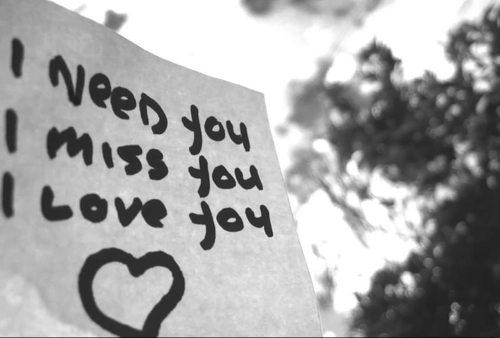 I NEED you
I miss you
I Love you